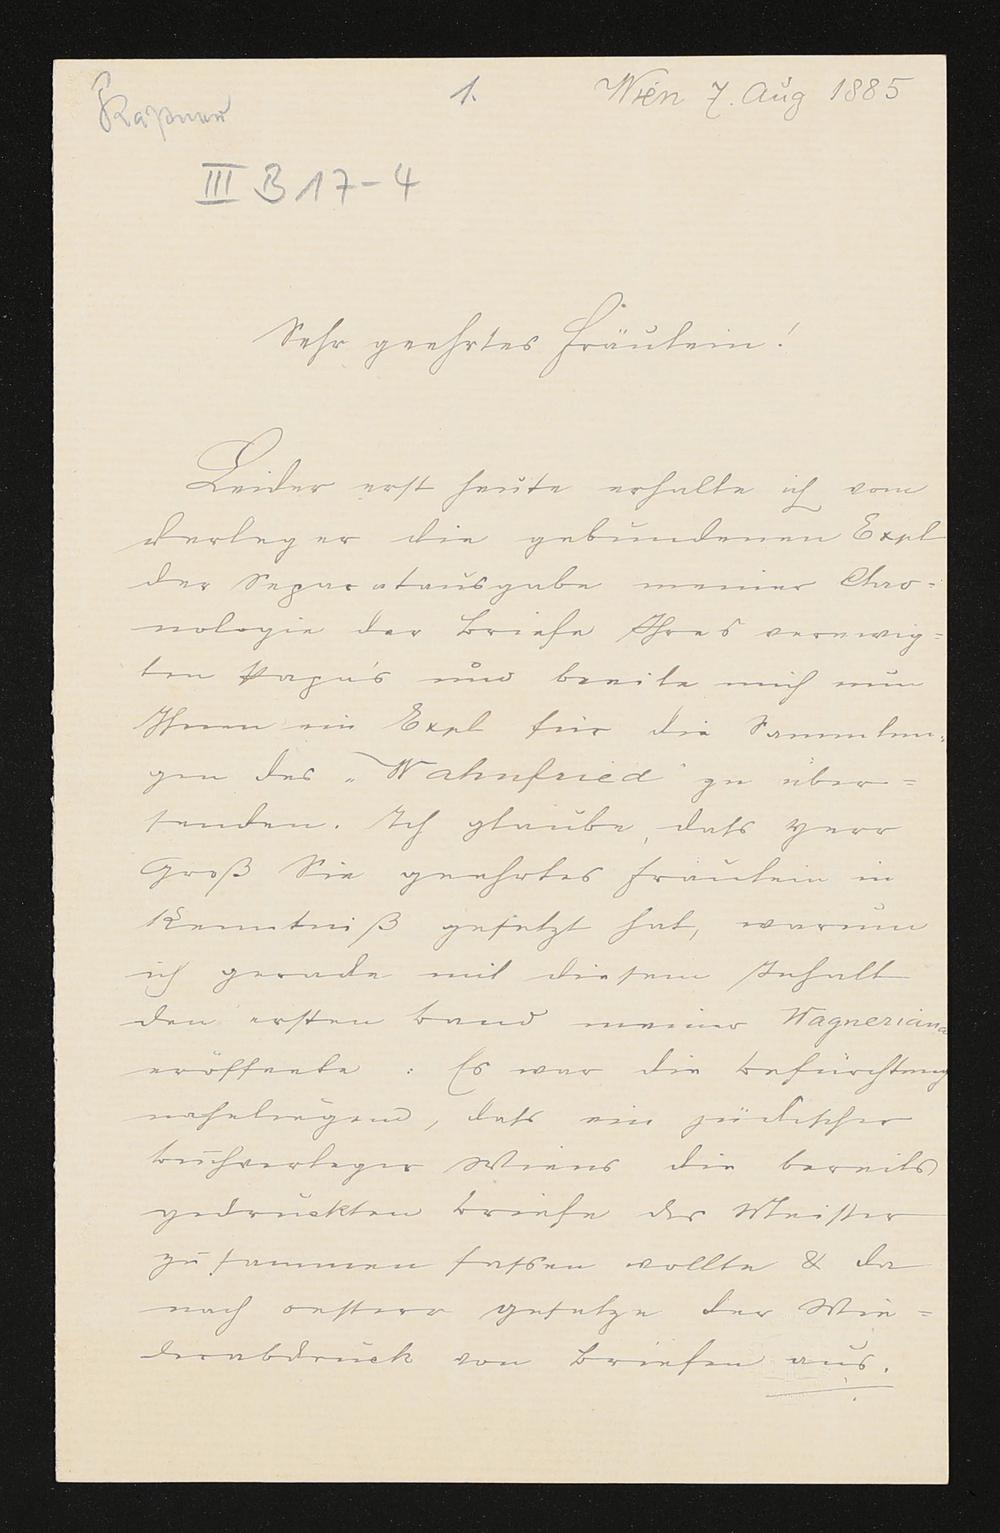 Kastner
1.
Wien 7. Aug 1885
III B 17-4
Sehr geehrtes Fräulein!
Leider erst heute erhalte ich vom
Verleger die gebundenen Expl
der Separatausgabe meiner Chro=
nologie der Briefe Ihres verewig=
ten Papa's und beeile mich nun
Ihnen ein Expl für die Sammlun=
gen des „Wahnfried“ zu über=
senden. Ich glaube, daß Herr
Groß Sie geehrtes Fräulein in
Kenntniß gesetzt hat, warum
ich gerade mit diesem Inhalt
den ersten Band meiner Wagneriana
eröffnete: Es war die Befürchtung
naheliegend, daß ein jüdischer
Buchverleger Wiens die bereits
gedruckten Briefe des Meister
zusammen fassen wollte & da
nach oesterr gesetze der Wie=
derabdruck von Briefen aus.